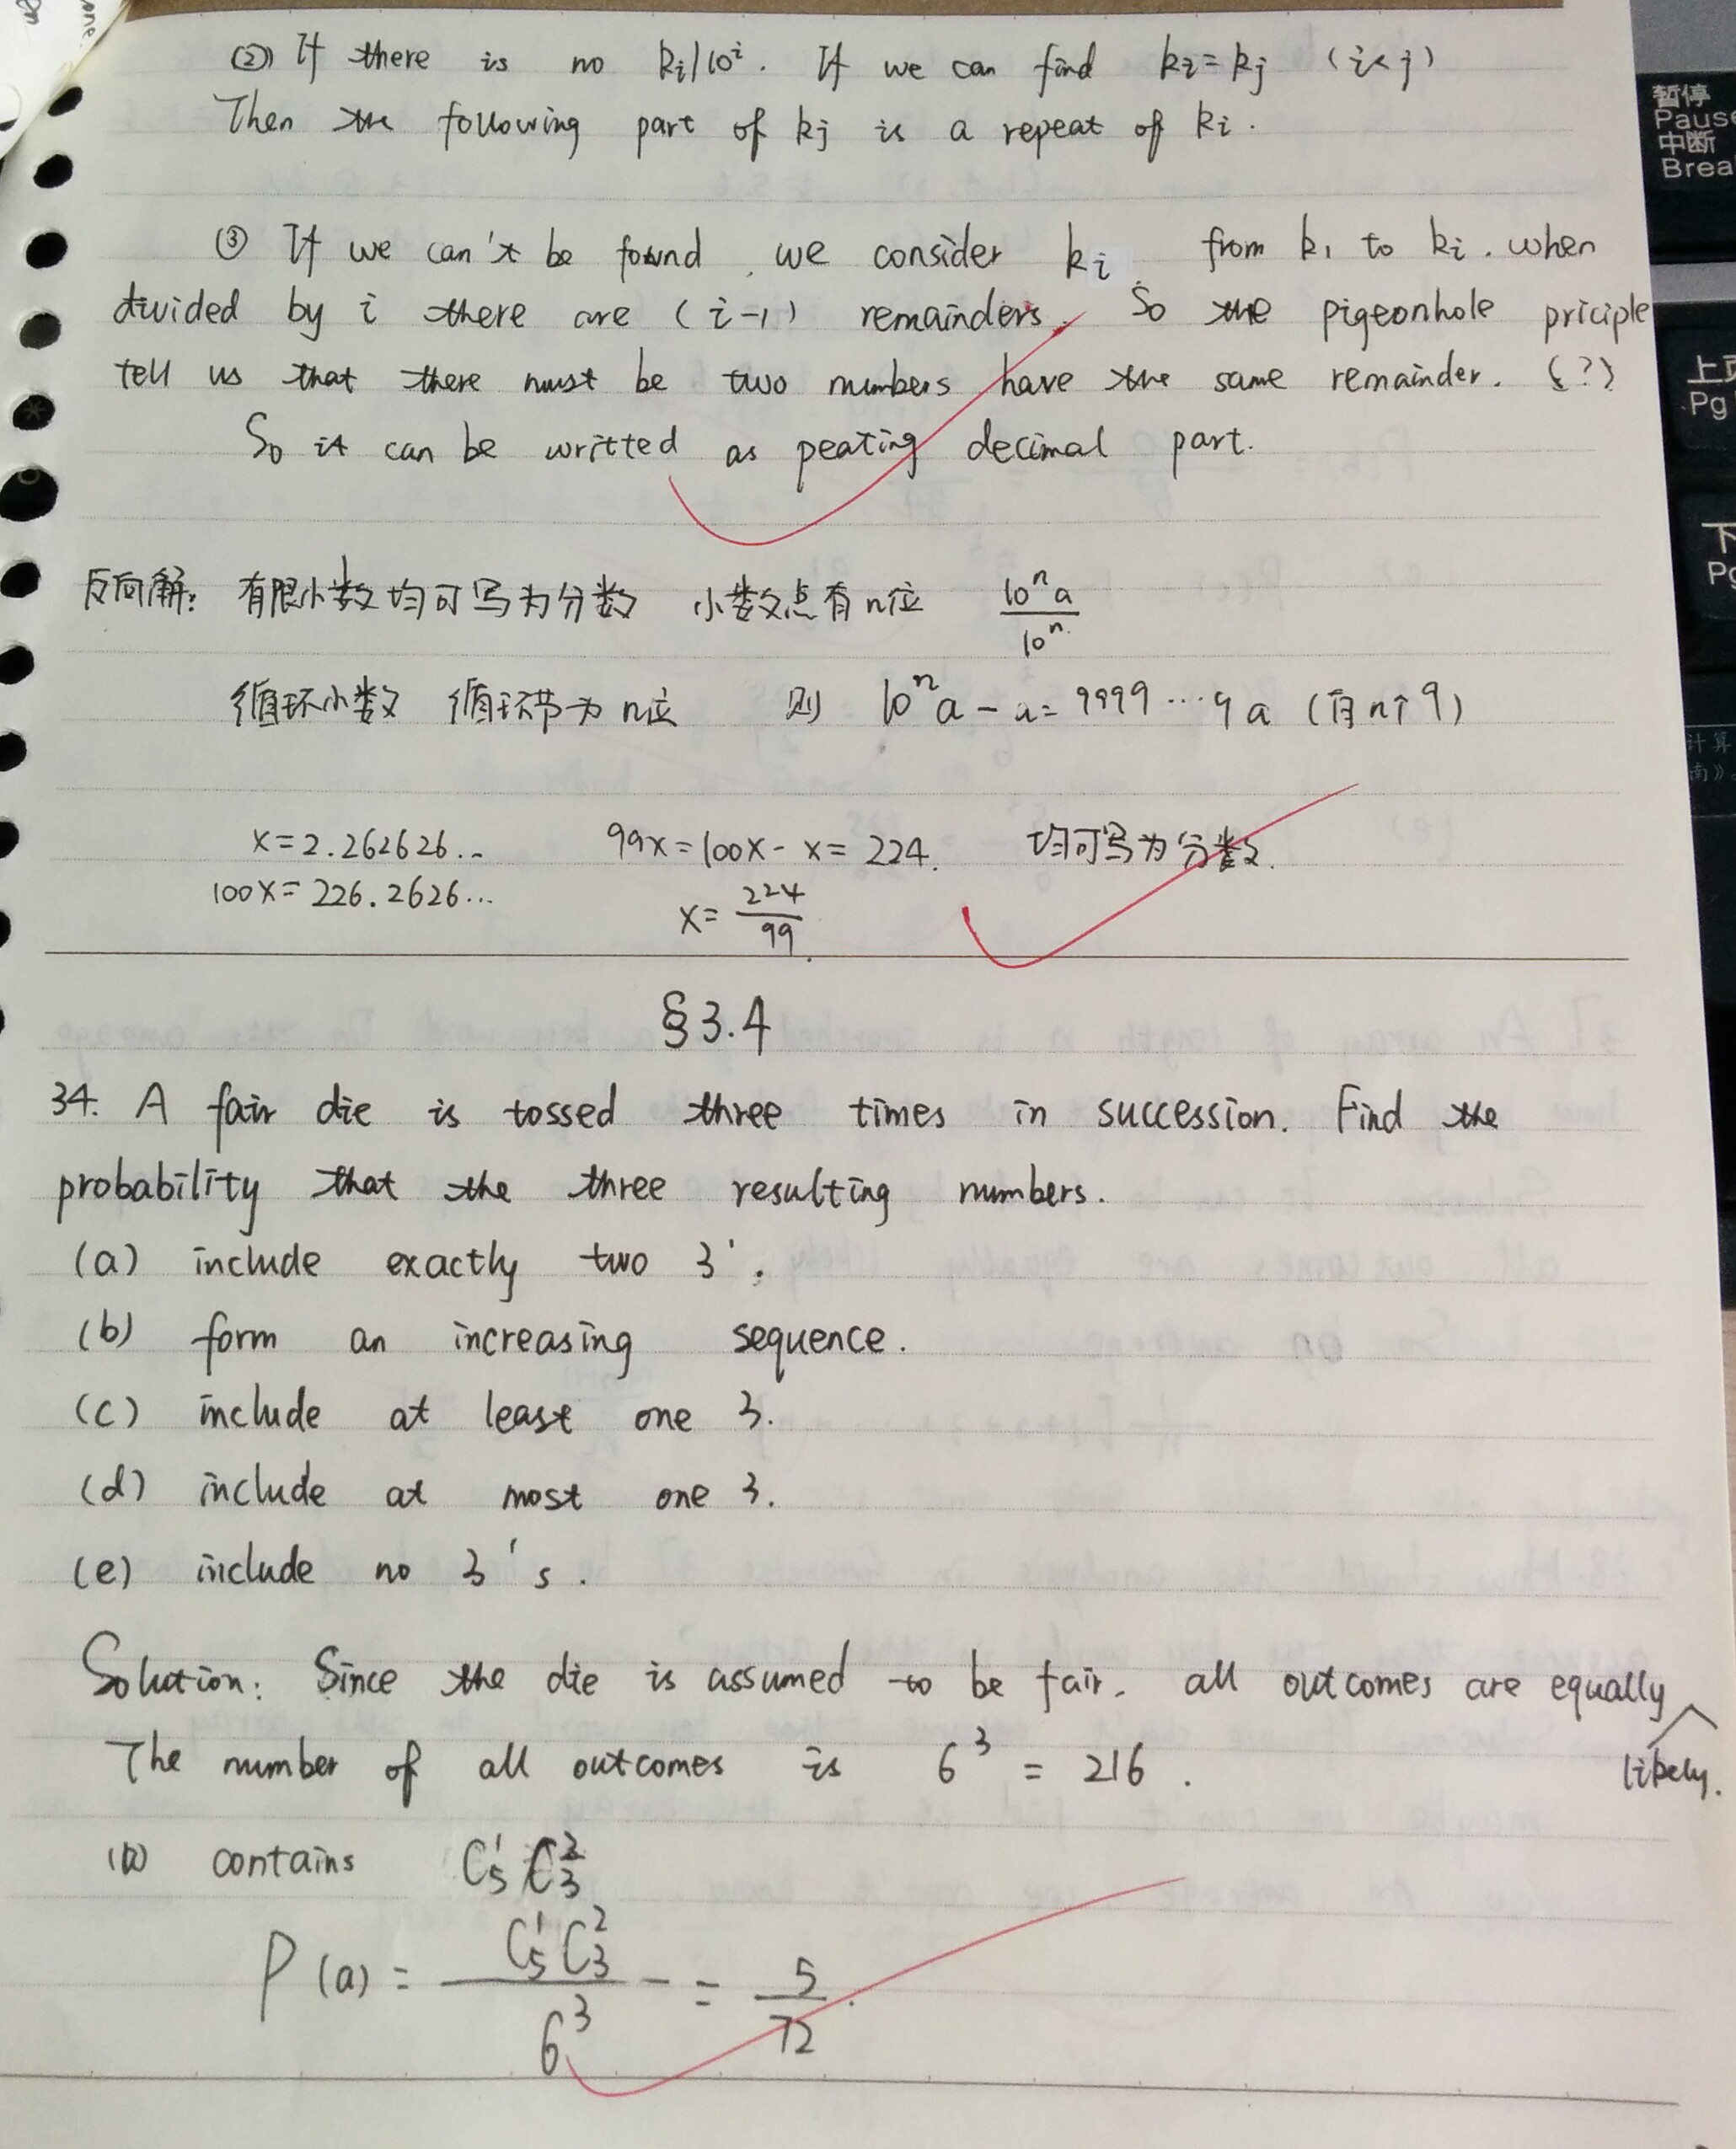 (2) If there is no ki|10^i. If we can find ki=kj (i<j)
Then the following part of kj is a repeat of ki.
③ If we can't be found, we consider ki from k1 to ki. when
divided by i there are (i-1) remainders. So the pigeonhole priciple
tell us that there must be two numbers have the same remainder. (?)
So it can be writted as peating decimal part.
反向解: 有限小数均可写为分数 小数点有n位 10^n a / 10^n.
循环小数 循环节为n位 则 10^n a - a = 9999…9a (有n个9)
x=2.262626… 99x=100x-x=224. 均可写为分数.
100x=226.2626… x=224/99.
§3.4
34. A fair die is tossed three times in succession. Find the
probability that the three resulting numbers.
(a) include exactly two 3'.
(b) form an increasing sequence.
(c) include at least one 3.
(d) include at most one 3.
(e) include no 3's.
Solution: Since the die is assumed to be fair. all outcomes are equally
likely.
The number of all outcomes is 6^3 = 216.
(a) contains C_5^1 C_3^2
P(a) = C_5^1 C_3^2 / 6^3 = 5/72.
暂停
Pause
中断
Brea
上页
Pg
下
Pg
计算
南》